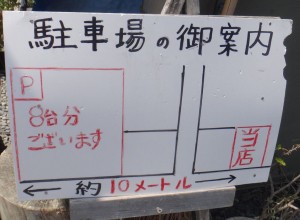 駐車場の御案内
P
8台分
ございます
当店
約10メートル